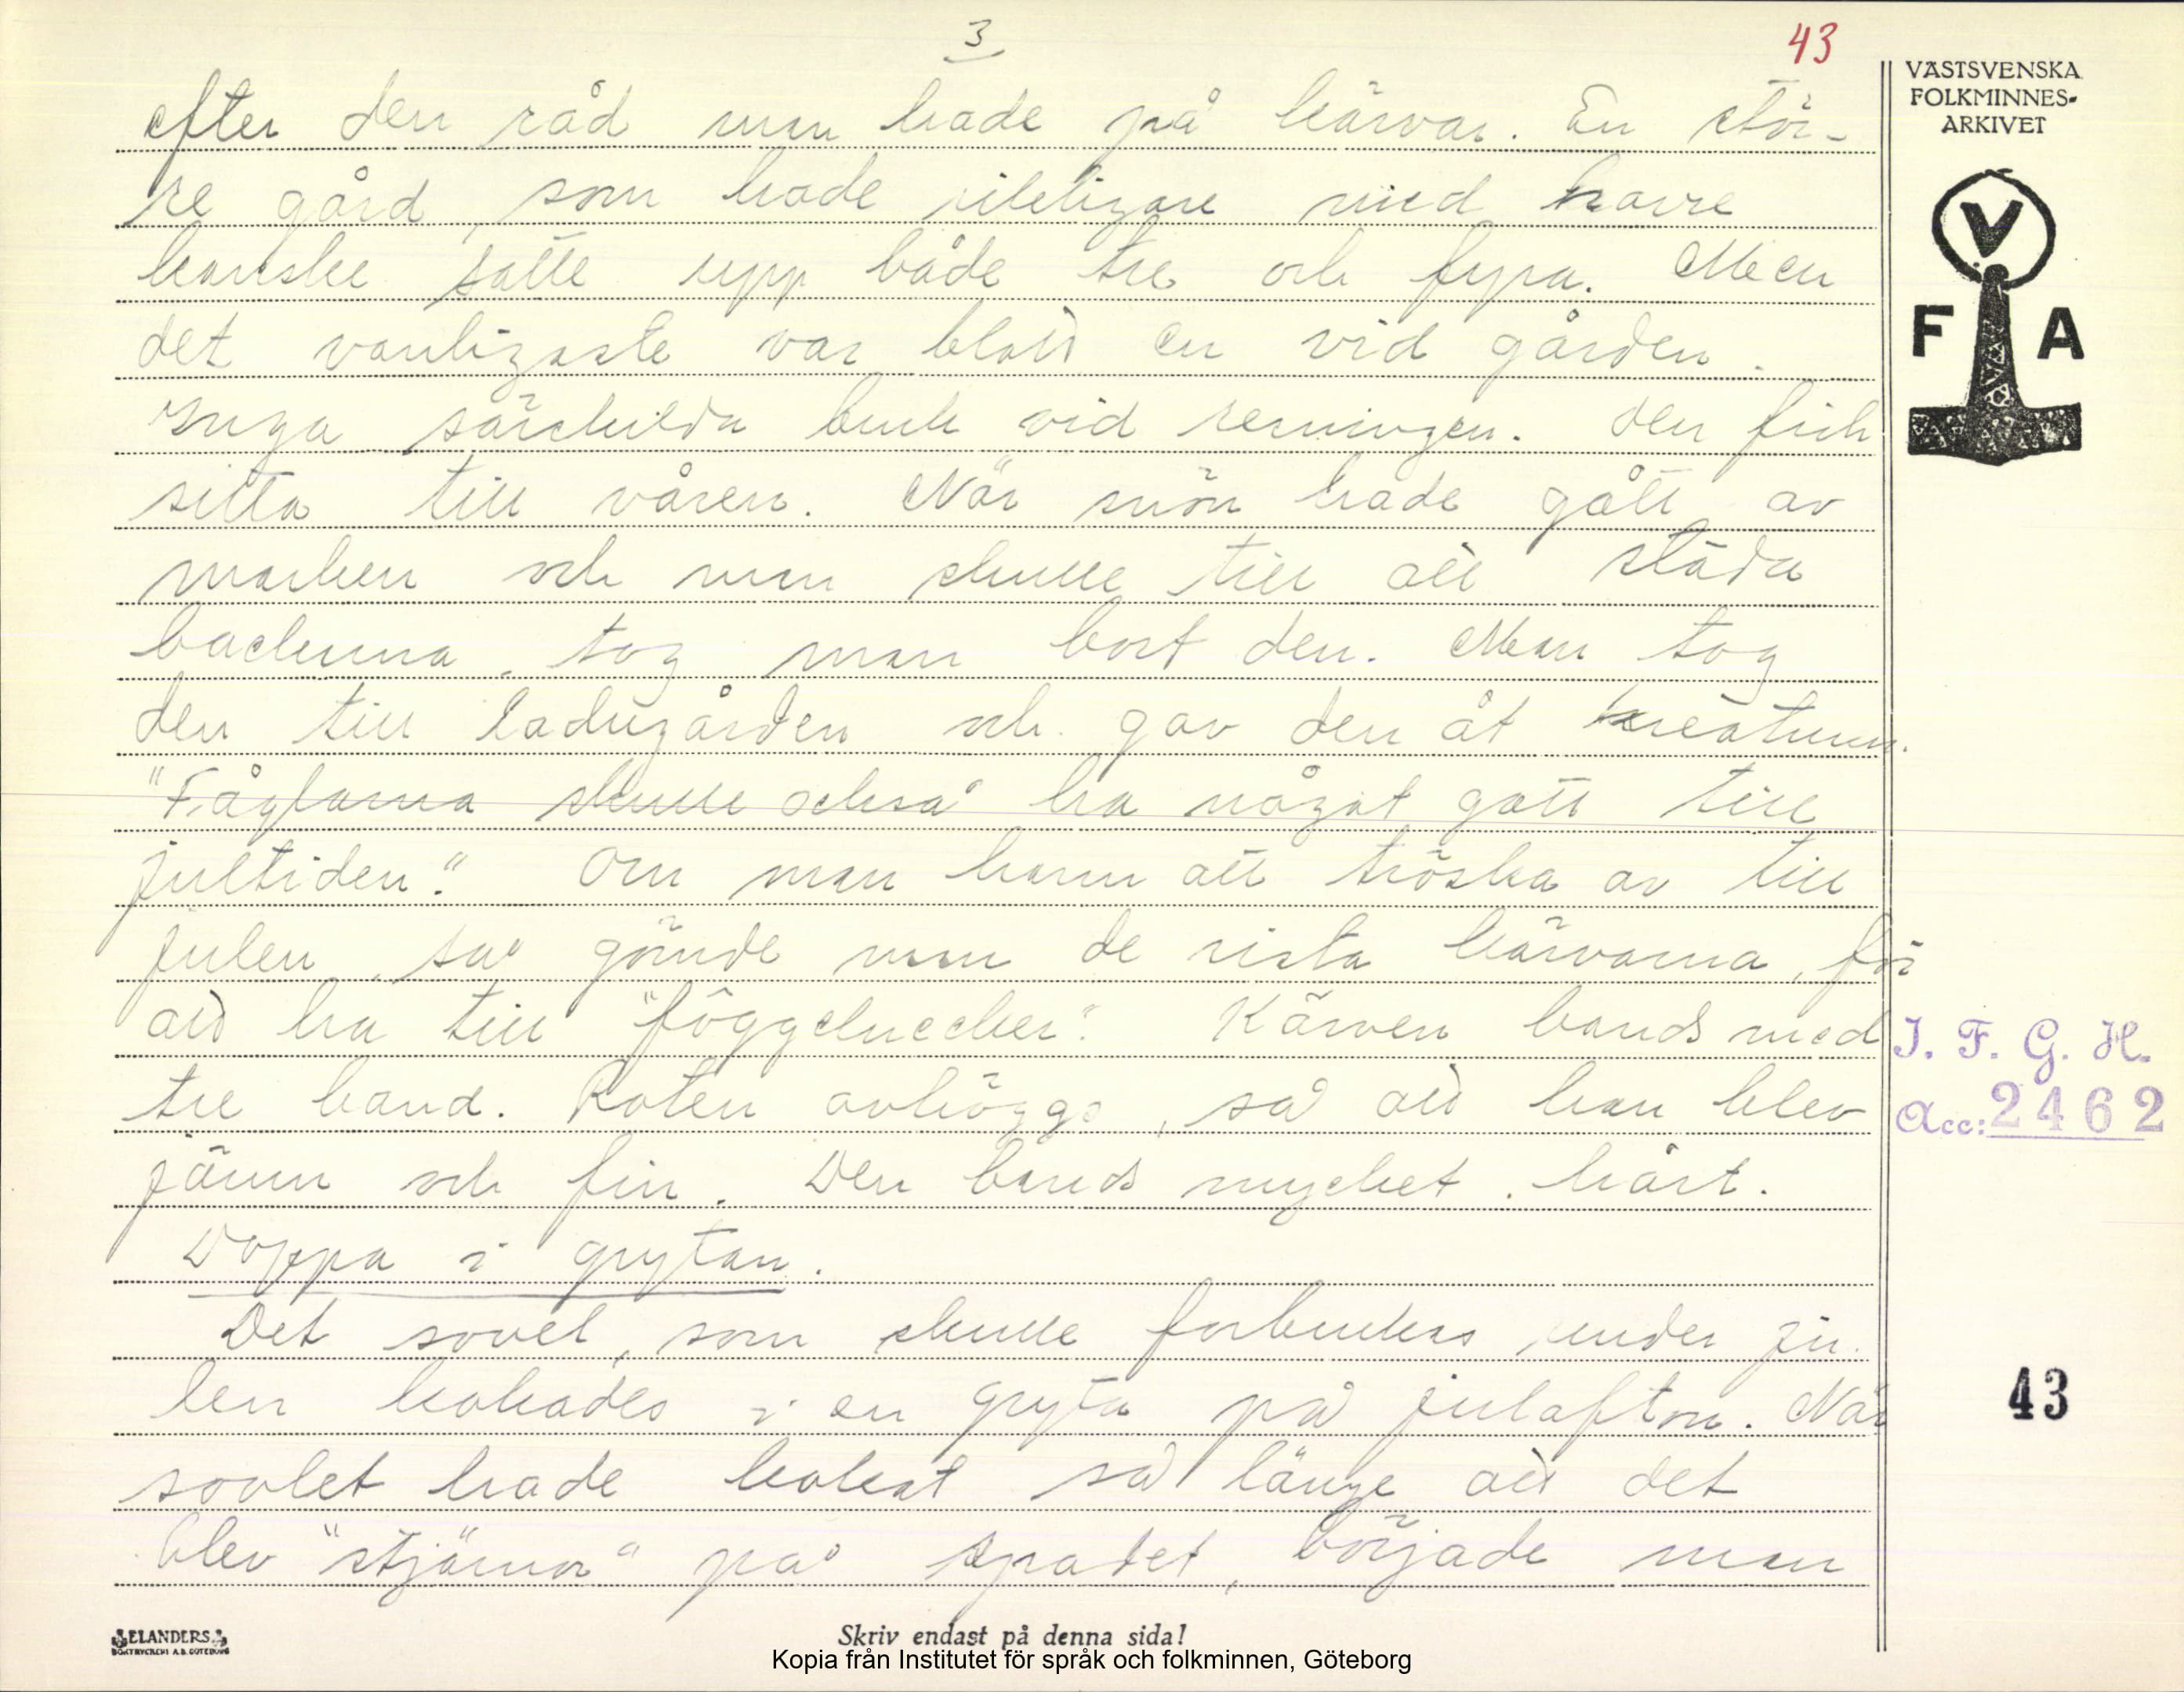 3
43
efter den råd man hade på kärvar. En stör-
re gård, som hade rikligare med havre
kanske satte upp både tre och fyra. Men
det vanligaste var blott en vid gården.
Inga särskilda bruk vid resningen. Den fick
sitta till våren. När snön hade gått av
marken och man skulle till att städa
backarna, tog man bort den. Man tog
den till ladugården och gav den åt kreaturen.
"Fåglarna skulle också ha något gott till
jultiden." Om man hann att tröska av till
julen, så gömde man de sista kärvarna, för
att ha till "föggelnecker". Kärven bands med
tre band. Roten avhöggs, så att han blev
jämn och fin. Den bands mycket hårt.
Doppa i grytan.
Det sovel, som skulle förbrukas under ju-
len kokades i en gryta på julafton. När
sovlet hade kokat så länge att det
blev "stjärnor" på spadet, började man
VÄSTSVENSKA
FOLKMINNES-
ARKIVET
V
F A
I. F. G. H.
Acc: 2462
43
ELANDERS
BOKTRYCKERI A.B. GÖTEBORG
Skriv endast på denna sida!
Kopia från Institutet för språk och folkminnen, Göteborg